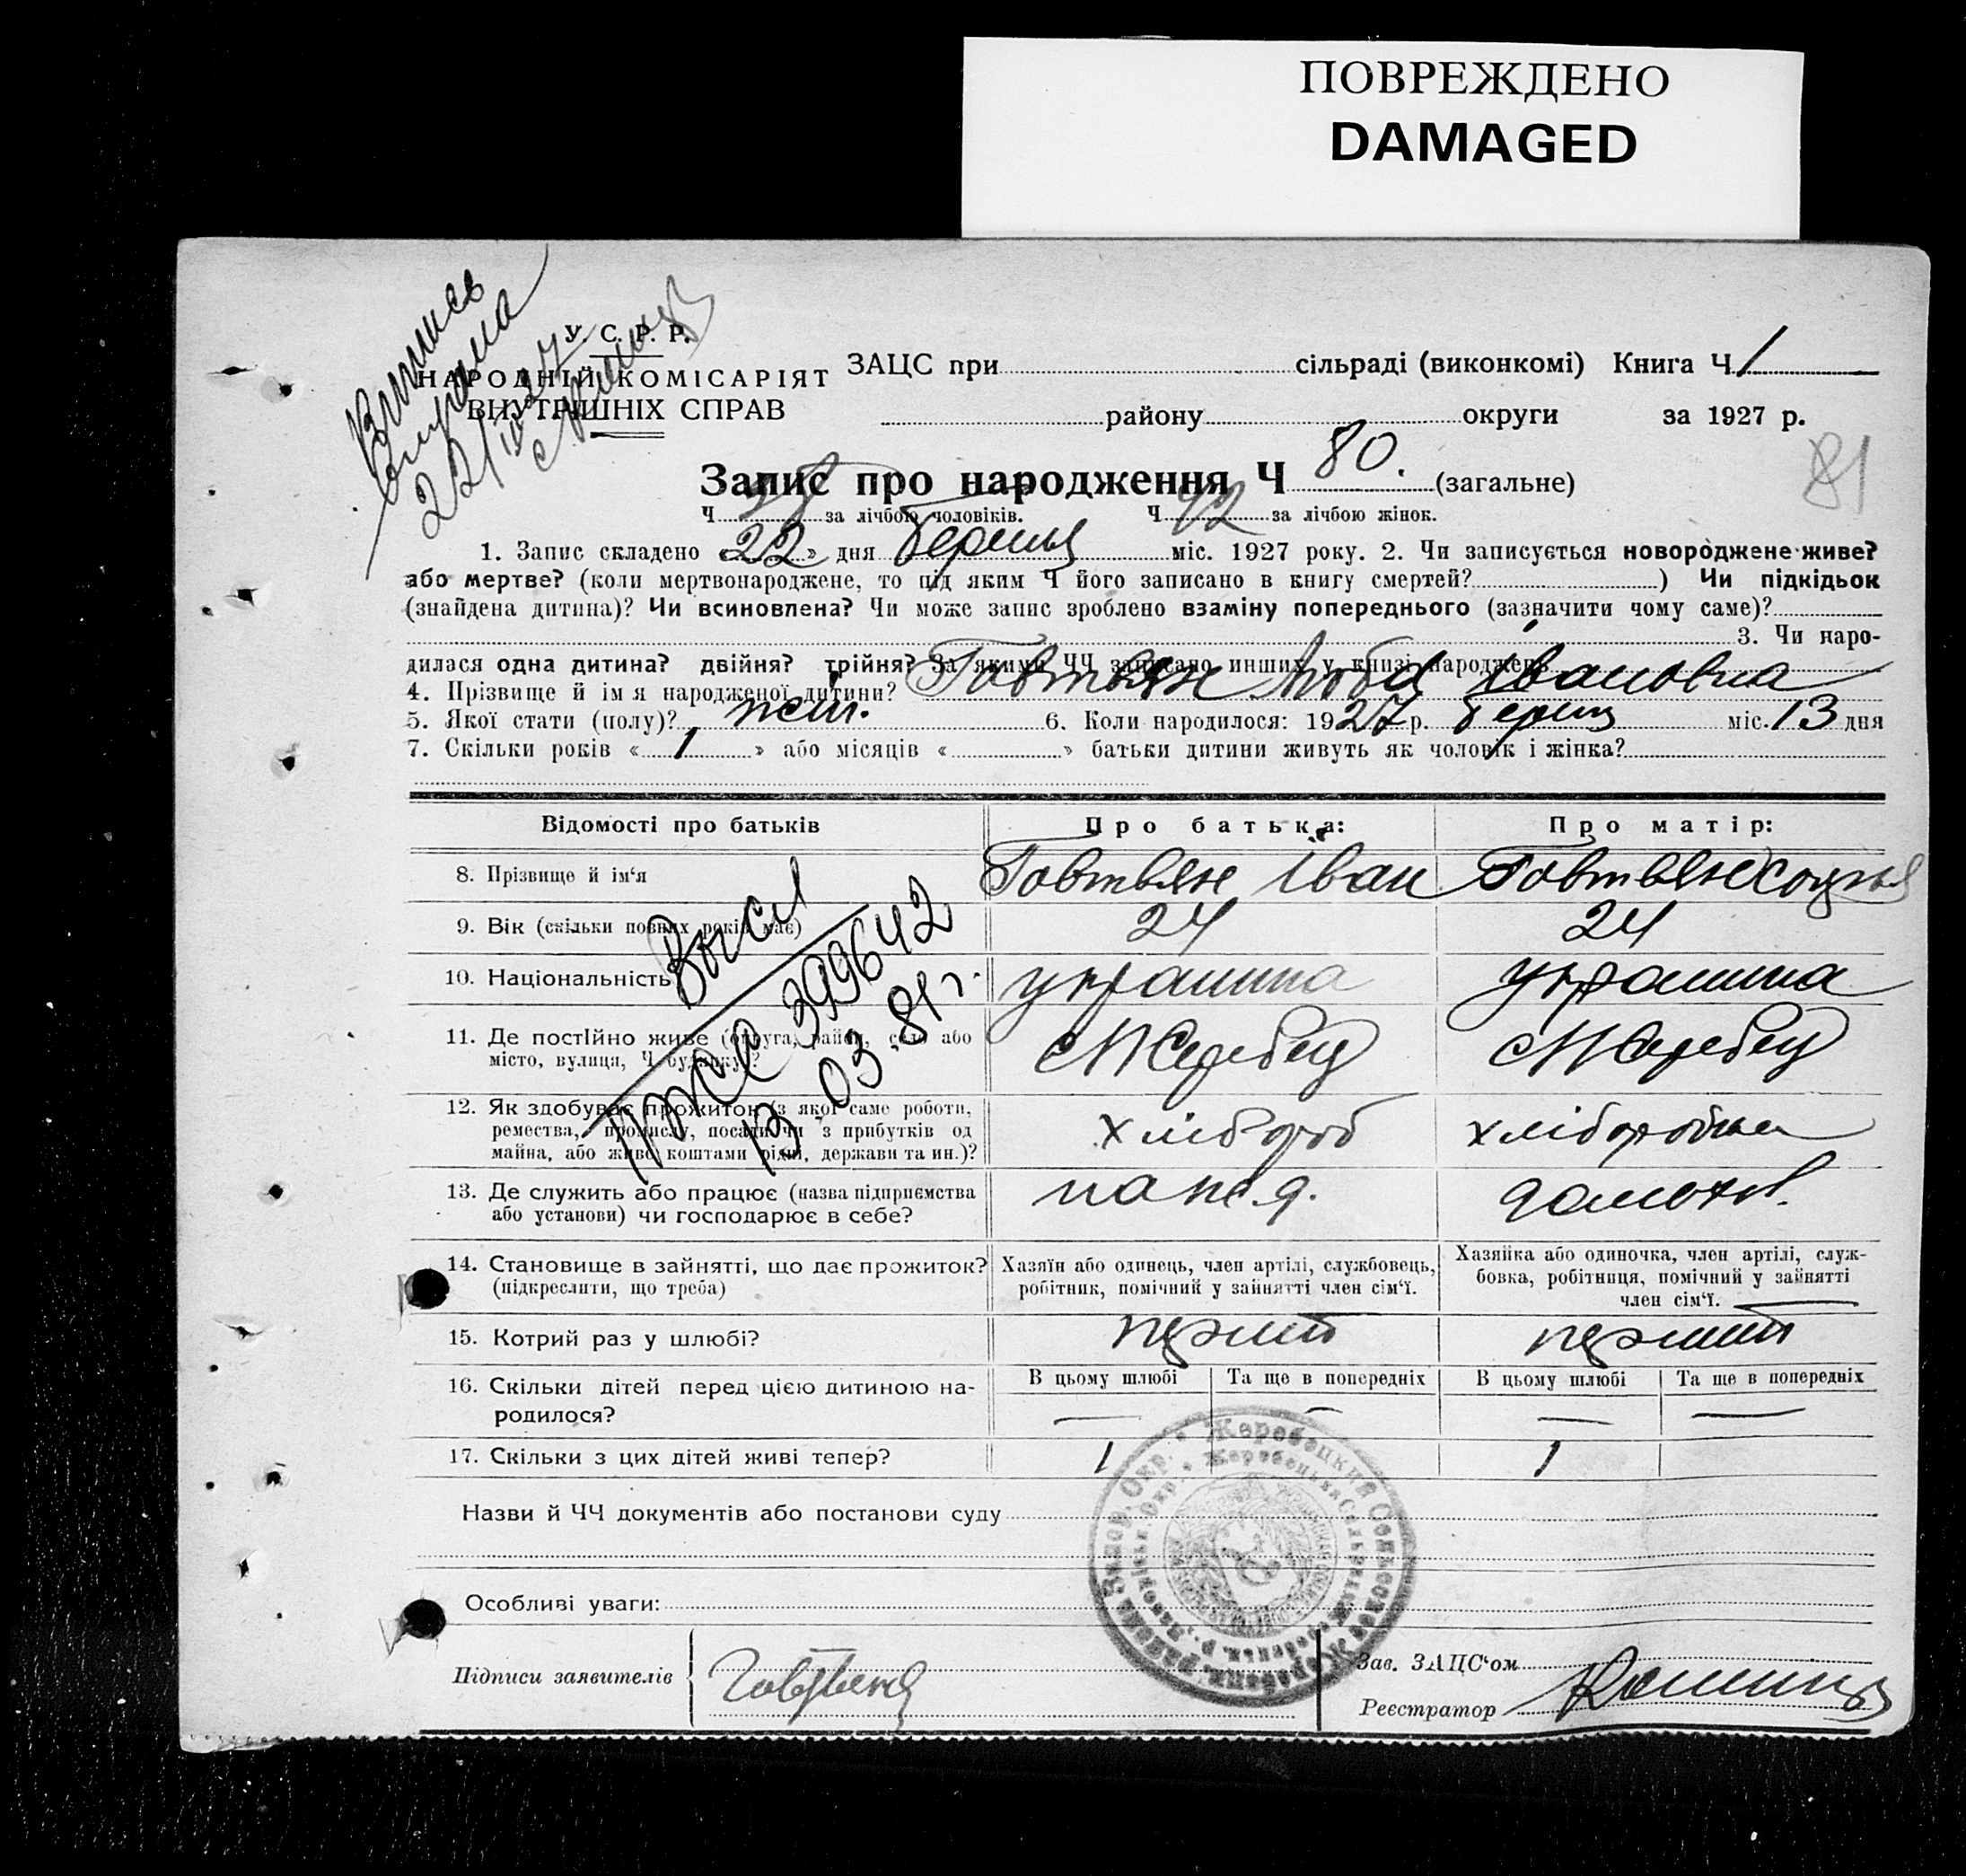 ПОВРЕЖДЕНО
DAMAGED
Випись
видана
22/IV 27
У. С. Р. Р.
НАРОДНІЙ КОМІСАРІЯТ
ВНУТРІШНІХ СПРАВ
ЗАЦС при сільраді (виконкомі) Книга Ч 1
району округи за 1927 р.
81
Запис про народження Ч 80. (загальне)
Ч 38 за лічбою чоловіків. Ч 42 за лічбою жінок.
1. Запис складено «22» дня берця міс. 1927 року. 2. Чи записується новороджене живе?
або мертве? (коли мертвонароджене, то під яким Ч його записано в книгу смертей? ) Чи підкідьок
(знайдена дитина)? Чи всиновлена? Чи може запис зроблено взаміну попереднього (зазначити чому саме)?
3. Чи наро-
дилася одна дитина? двійня? трійня? За якими ЧЧ записано инших у книзі народжень
4. Прізвище й ім я народженої дитини? Говтвян Люба Івановна
5. Якої стати (полу)? жін. 6. Коли народилося: 1927 р. берец міс. 13 дня
7. Скільки років «1» або місяців « » батьки дитини живуть як чоловік і жінка?
Відомості про батьків Про батька: Про матір:
8. Прізвище й ім'я Говтвян Іван Говтвян
9. Вік (скільки повних років має) 24 24
10. Національність украинка украинка
11. Де постійно живе (округа, район, село або
місто, вулиця, Ч будинку)? с Жеребец с Жеребец
12. Як здобуває прожиток (з якої саме роботи,
ремества, промислу, посади чи з прибутків од
майна, або живе коштами рідні, держави та ин.)? хлібороб хліборобка
13. Де служить або працює (назва підприємства
або установи) чи господарює в себе? домохоз.
14. Становище в зайнятті, що дає прожиток?
(підкреслити, що треба)
Хазяїн або одинець, член артілі, службовець,
робітник, помічний у зайнятті член сім'ї.
Хазяйка або одиночка, член артілі, служ-
бовка, робітниця, помічний у зайнятті
член сім'ї.
15. Котрий раз у шлюбі? перший перший
16. Скільки дітей перед цією дитиною на-
родилося?
В цьому шлюбі Та ще в попередніх В цьому шлюбі Та ще в попередніх
— — — —
17. Скільки з цих дітей живі тепер? 1 1
ВыСл
399642
13.03.81г.
Назви й ЧЧ документів або постанови суду
Особливі уваги:
Підписи заявителів
Зав. ЗАЦС'ом
Реєстратор